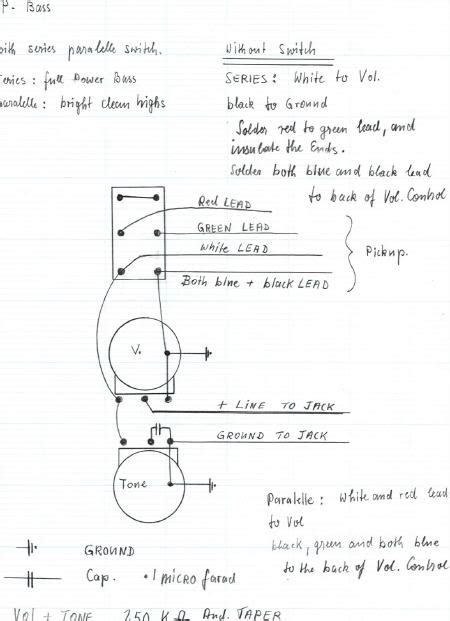 P- Bass
with series paralelle switch.
Series: full Power Bass
Paralelle: bright clean highs
Without Switch
SERIES: White to Vol.
black to Ground
Solder red to green lead, and
insulate the Ends.
Solder both blue and black lead
to back of Vol. Control
Red LEAD
GREEN LEAD
White LEAD
Both blue + black LEAD
Pickup.
V.
+ LINE TO JACK
GROUND TO JACK
Tone
Paralelle: White and red lead
to Vol
black, green and both blue
to the back of Vol. Control
GROUND
Cap. .1 MICRO farad
Vol + TONE 250 K Ω Aud. TAPER